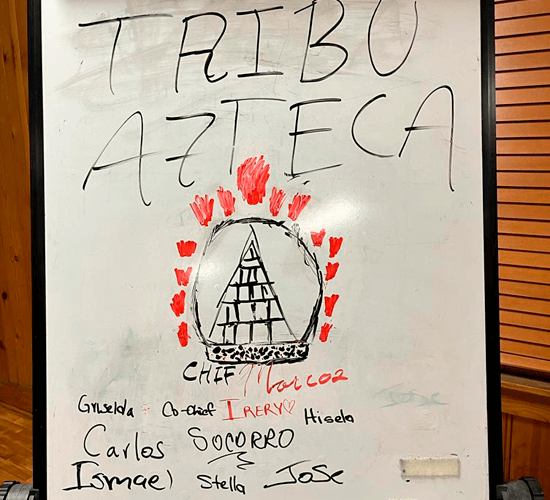 TRIBU
AZTECA
CHIF Marcos
Griselda Co-Chief IRERY♡ Hisela
Carlos SOCORRO
Ismael Stella Jose